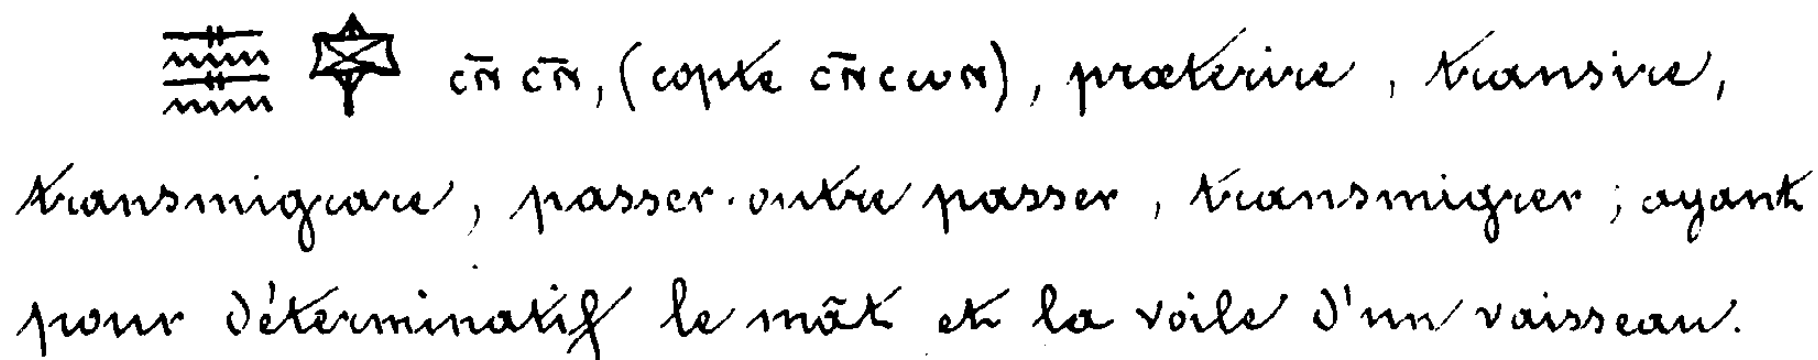 𓊃𓈖𓊃𓈖𓊡 ⲥⲛ̄ ⲥⲛ̄, (copte ⲥⲛ̄ⲥⲱⲛ), præterire, transire,
transmigrare, passer outre passer, transmigrer; ayant
pour déterminatif le mât et la voile d'un vaisseau.